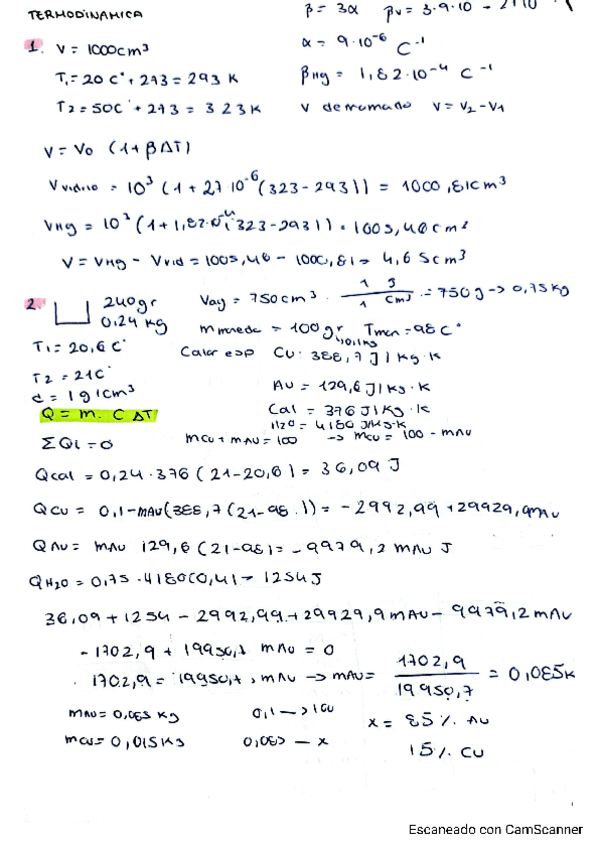 TERMODINAMICA
β = 3α βv = 3·9·10
1. V = 1000cm³
α = 9·10⁻⁶ C⁻¹
T₁ = 20 C° + 273 = 293 K
βHg = 1,82·10⁻⁴ C⁻¹
T₂ = 50C° + 273 = 323K
V derramado V = V₂ - V₁
V = V₀ (1 + βΔT)
Vvidrio = 10³ (1 + 27·10⁻⁶ (323 - 293)) = 1000,81cm³
VHg = 10³ (1 + 1,82·10⁻⁴(323 - 293)) = 1005,46cm³
V = VHg - Vvid = 1005,46 - 1000,81 = 4,65cm³
2. 240gr
0.24 kg
Vag = 750cm³ · 1 g / 1 cm³ = 750g -> 0,75kg
m moneda = 100gr Tmon = 98C°
0,1kg
T₁ = 20,6 C°
Calor esp Cu: 388,7 J/kg·K
T₂ = 21C°
Au = 129,6 J/kg·K
d = 1g/cm³
Cal = 376 J/kg·K
Q = m·C ΔT
H₂O = 4180 J/kg·K
ΣQi = 0
mCu + mAu = 100 -> mCu = 100 - mAu
Qcal = 0,24·376 (21-20,6) = 36,09 J
QCu = 0,1-mAu(388,7 (21-98)) = -2992,99 + 29929,9mAu
QAu = mAu 129,6 (21-98) = -9979,2 mAu J
QH₂O = 0,75·4180(0,4) = 1254J
36,09 + 1254 - 2992,99 + 29929,9 mAu - 9979,2 mAu
-1702,9 + 19950,7 mAu = 0
1702,9 = 19950,7 · mAu -> mAu = 1702,9 / 19950,7 = 0,085K
mAu = 0,085 kg 0,1 —> 100
x = 85% Au
mCu = 0,015Kg 0,085 — x
15% Cu
Escaneado con CamScanner